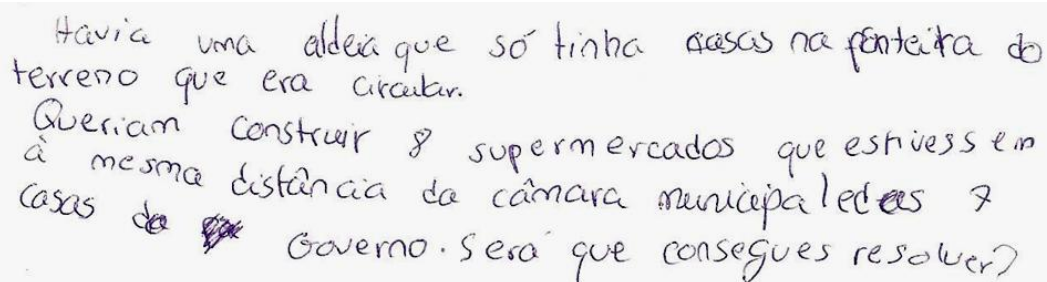 Havia uma aldeia que só tinha casas na fonteira do
terreno que era circular.
Queriam construir 8 supermercados que estivessem
à mesma distância da câmara municipal e das 7
casas do Governo. Será que consegues resolver?